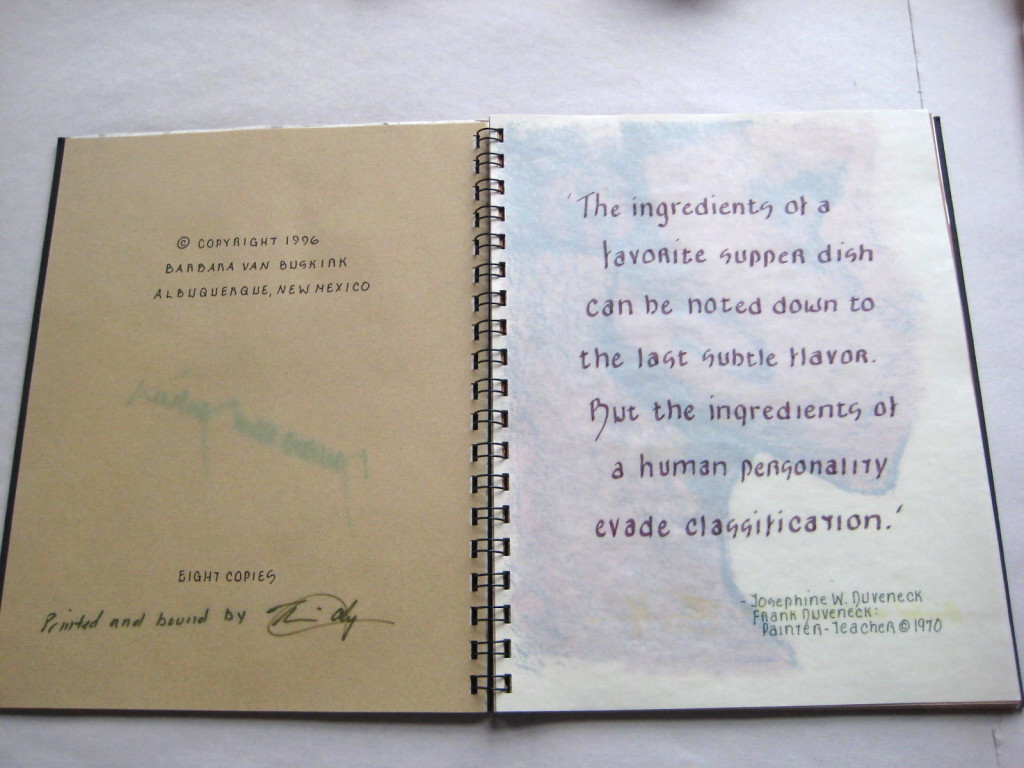 © COPYRIGHT 1996
BARBARA VAN BUSKIRK
ALBUQUERQUE, NEW MEXICO
EIGHT COPIES
Printed and bound by
'The ingredients of a
favorite supper dish
can be noted down to
the last subtle flavor.
But the ingredients of
a human personality
evade classification.'
- Josephine W. Duveneck
Frank Duveneck:
Painter-Teacher © 1970